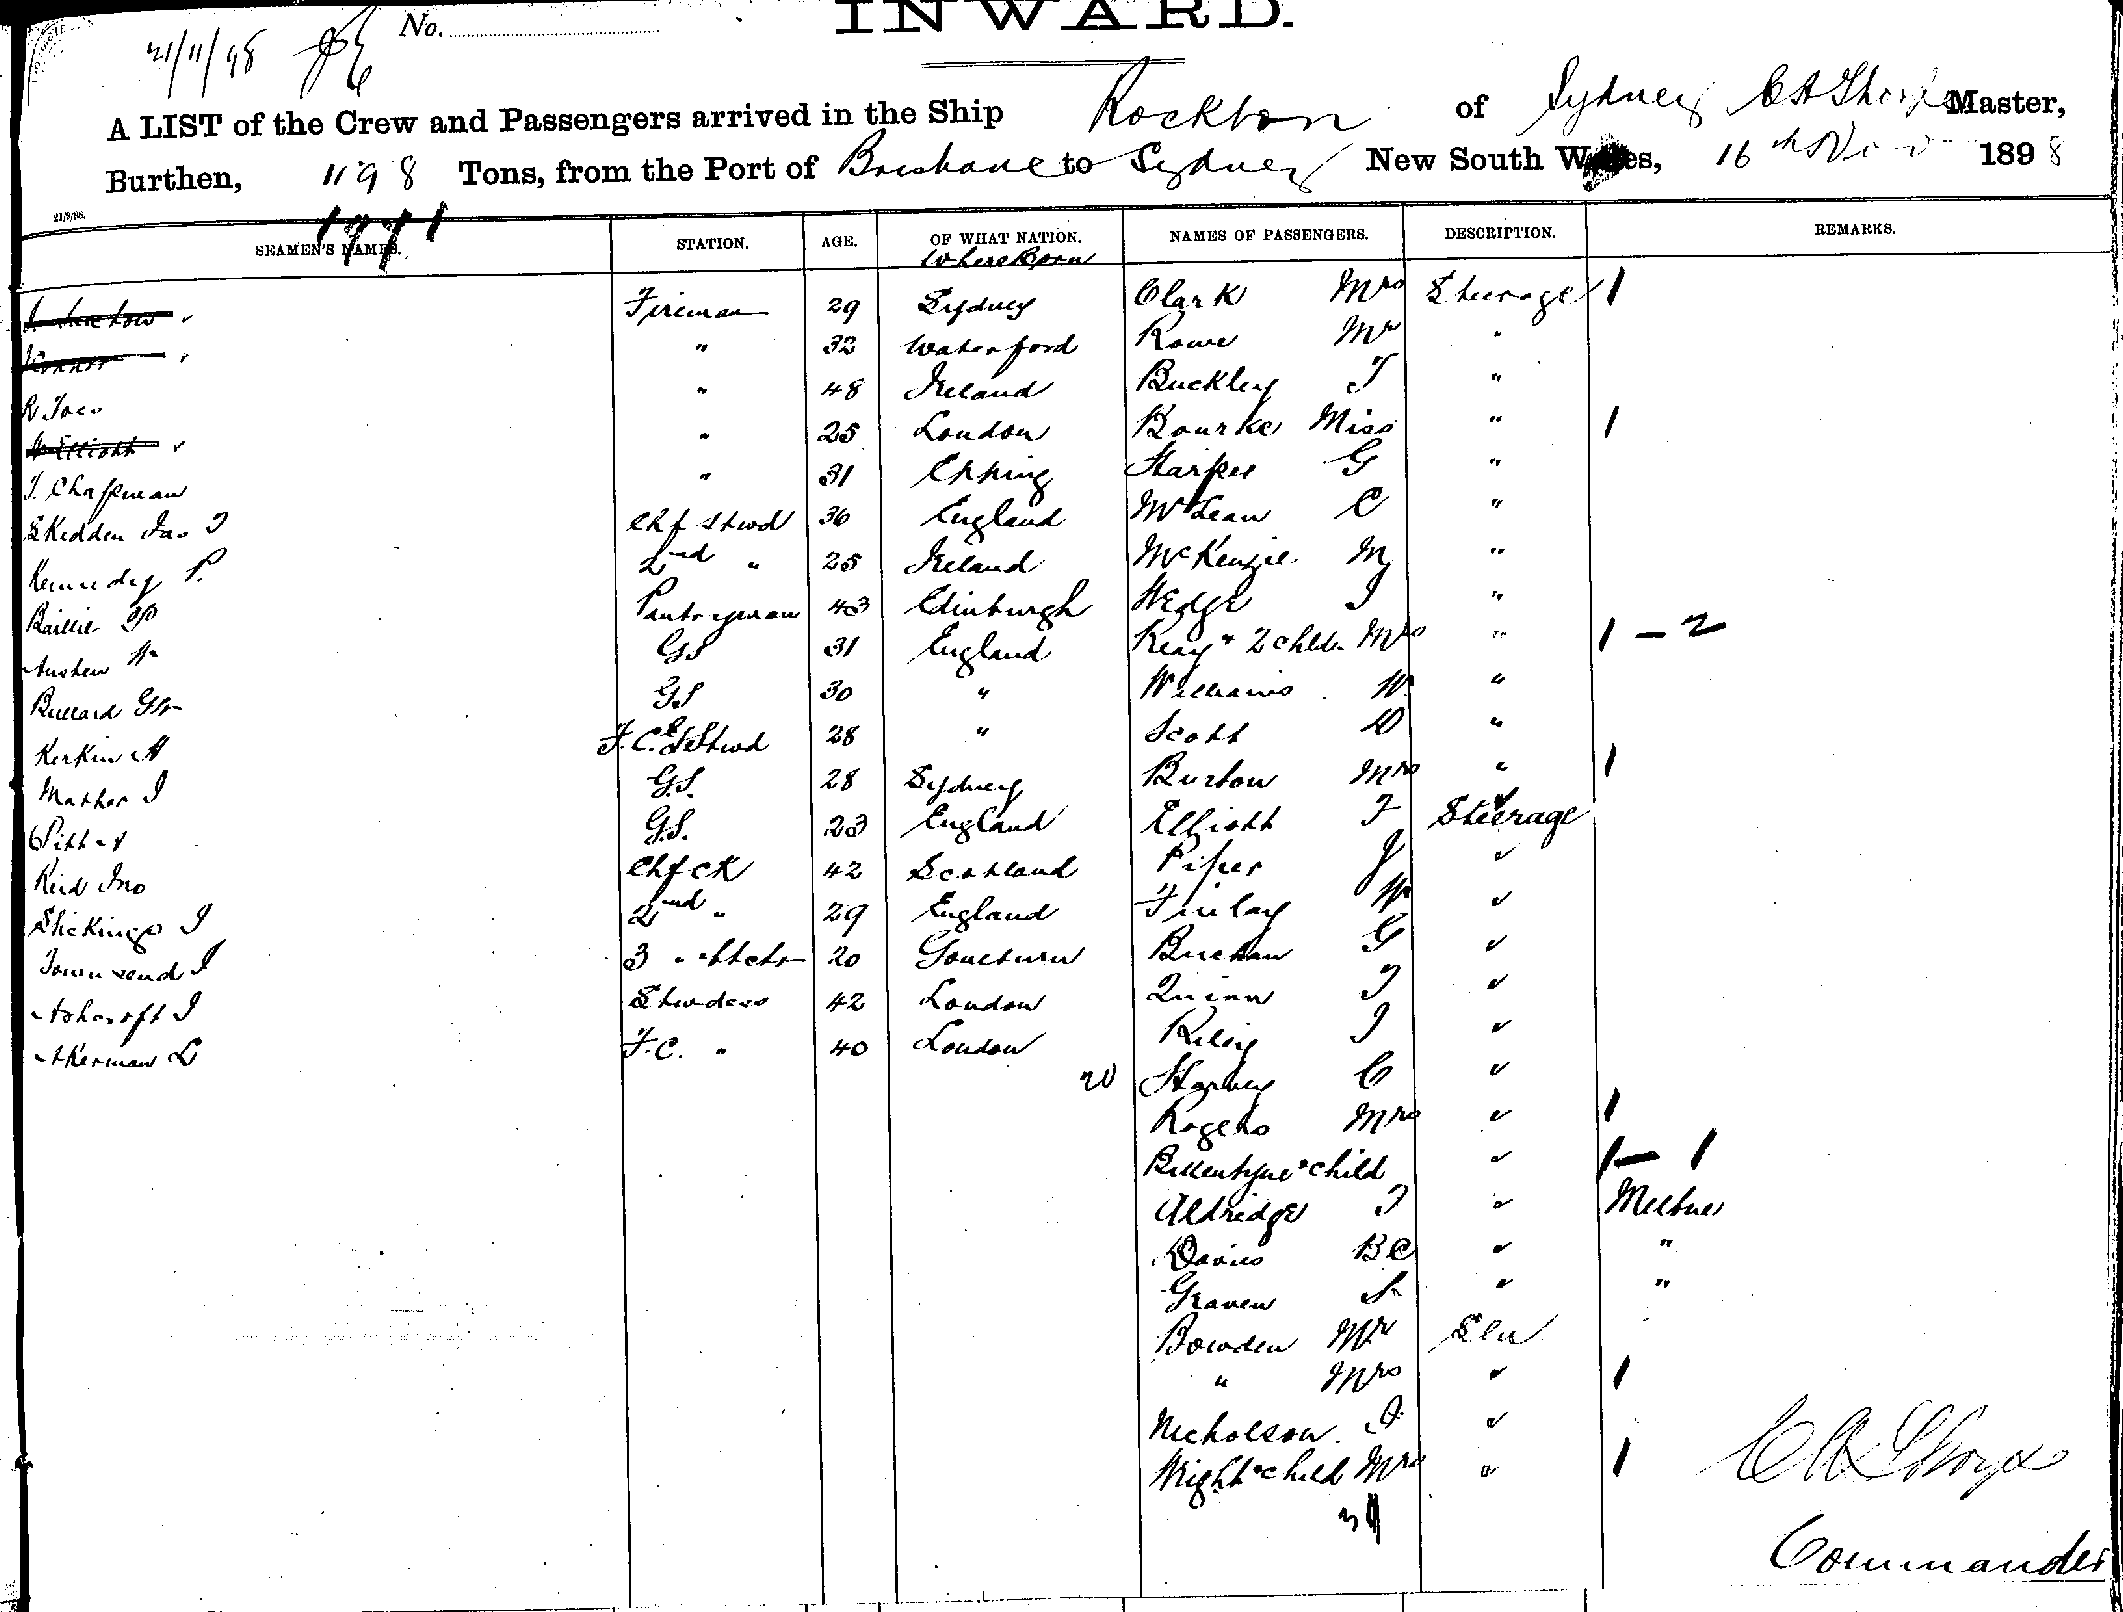 INWARD.
21/11/98 No.
A LIST of the Crew and Passengers arrived in the Ship Rockton of Sydney C A Thorpe Master,
Burthen, 1198 Tons, from the Port of Brisbane to Sydney New South Wales, 16th Nov 1898
21/3/98.
1771
SEAMEN'S NAMES. STATION. AGE. OF WHAT NATION. NAMES OF PASSENGERS. DESCRIPTION. REMARKS.
Where Born
Fireman 29 Sydney Clark Mrs Steerage 1
Connor " 32 Waterford Rowe Mr "
" 48 Ireland Buckley T "
W Elliott " 25 London Bourke Miss " 1
T. Chapman " 31 Epping Harper G "
Skedden Jas T Chf Stwd 36 England McLean C "
Kennedy P. 2nd " 25 Ireland McKenzie M "
Baillie Pantryman 43 Edinburgh Hedge J "
Austen W GS 31 England Keay & 2 childn Mrs " 1 - 2
Bullard GW GS 30 " Williams W "
Kerkin A F.C. Stwd 28 " Scott D "
Mather J G.S. 28 Sydney Burton Mrs " 1
Pitt A G.S. 23 England Elliott F Steerage
Reid Jno Chf CK 42 Scotland Piper J "
Stickings J 2nd " 29 England Finlay W "
Townsend J 3 " 20 Goulburn Buchan G "
Ashcroft J Stwdess 42 London Quinn T "
Akerman L F.C. " 40 London Riley J "
20 Harvey C "
Rogers Mrs " 1
Ballentyne & child " 1 - 1
Aldridge T " Melbne
Davies BC " "
Graven A " "
Bowden Mr Sln
" Mrs " 1
Nicholson J "
Wright & child Mrs " 1
C A Thorpe
Commander